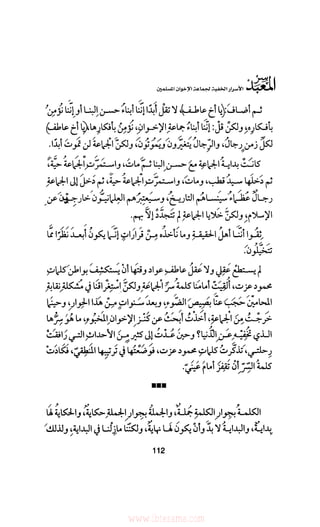 سر المعبد
الأسرار الخفية لجماعة الإخوان المسلمين
ثـم أضـافَ: يا أخ عاطـف، لا تقُلْ أَبدًا إنَّنا أبناءُ حسـن البنـا أو إنَّنا نُؤمِنُ
بأفكـارِه، ولكنْ قُلْ: إنَّنا أبناءُ جماعةِ الإخـوانِ، نُؤمِنُ بأفكارِها، يا أخ عاطف
لكلِّ زمنٍ رجالٌ، والرِّجالُ يَتغيَّرونَ ويَمُوتُونَ، ولكنَّ الجَماعةَ لن تَموتَ أبدًا.
كانَـتْ بدايـةُ الجماعةِ معَ حسـن البنا ثـمَّ ماتَ، واسـتمرَّتِ الجَماعةُ حيَّةً،
ثمَّ دَخلَها سـيد قطب، وماتَ، واسـتمرَّتِ الجَماعةُ حيةً، ثمَّ دَخلَ إلى الجماعةِ
رجـالٌ عُظَمـاءُ سيَنسـاهُم التاريـخُ، وسـيَعتبِرُهم العِلمانيُّـونَ خارجِـينَ عن
الإسلامِ، ولكنَّ خَلايا الجماعةِ لم تَتجدَّدْ إلَّا بِهم.
ثِقُـوا أنَّنـا أهلُ الحقيقـةِ وما نَأخذُه مِـنْ قَراراتٍ إنَّمـا يكونُ أبعـدَ نَظَرًا ممَّا
تَتخيَّلُونَ.
لم يسـتطعْ عَقلِي ولا عَقلُ عاطف عواد وقتَها أنْ يَسـتكشِفَ بواطنَ كلماتِ
محمود عزت، أُلقِيَتْ أمامَنا كلمةُ سرِّ الجَماعةِ ولكنَّ اسْتِغْراقَنا في مُشكلةِ نِقابةِ
المحامِيْنَ حَجَبَ عنَّا بَصِيصَ الضَّوءِ، وبعدَ سـنواتٍ مِنْ هَذا الحِوارِ، وحينَما
خَرجْتُ مِنَ الجَماعةِ، أَخَذْتُ أبْحَثُ عن كَنْـزِ الإخوانِ المَخْبُوءِ، ما هُوَ سِرُّها
الـذي تُخْفِيْـه عَـنِ الدُّنيا؟ وحينَ عُـدْتُ إلى كثيرٍ مِـنَ الأحداثِ التـي رَافقَتْ
رِحلتـي، تذكَّرتُ كلماتِ محمود عزت، فوَضعْتُها في تَرتِيبِها المَنْطِقِيِّ، فَكادَتْ
كلمةُ السِّرِّ أنْ تَقفِزَ أمامَ عَينَيَّ.
الكلمـةُ بجِوارِ الكلمةِ جُملـةٌ، والجملةُ بجِوارِ الجملةِ حكايةٌ، والحكايةُ لَها
بِدايـةٌ، والبدايـةُ لا بدَّ وأنْ يكونَ لَهـا نهايةٌ، ولكنَّنا مازِلْنـا في البدايةِ، ولذلكَ
112